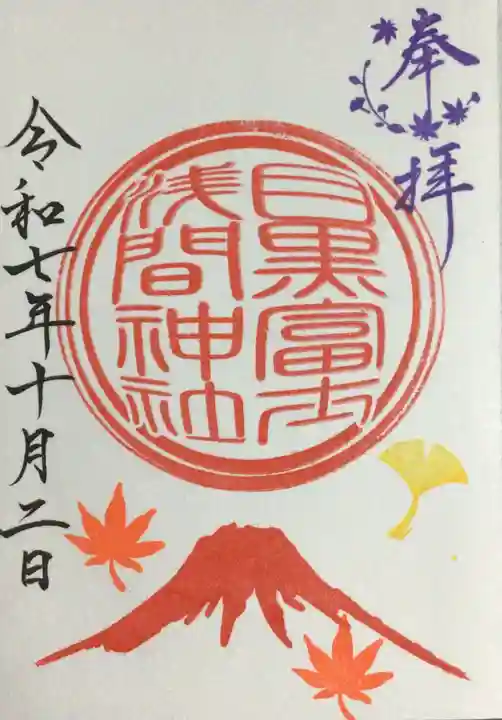 奉拝
目黒富士
浅間神社
令和七年十月二日